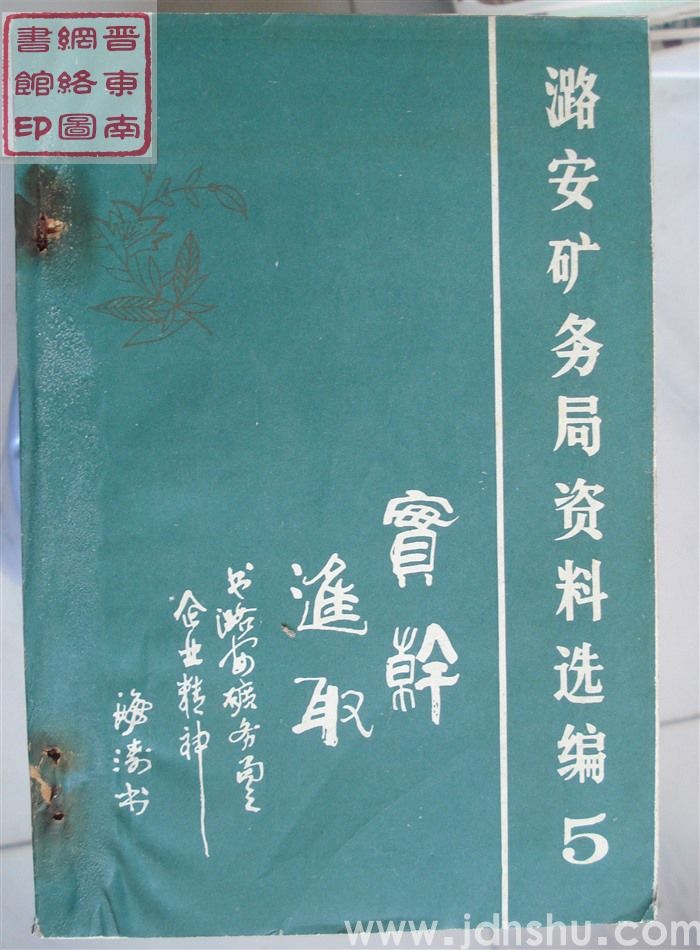 晋东南
網络圖
書館印
潞安矿务局资料选编5
實幹
進取
书潞安礦务局
企业精神
www.jdnshu.com